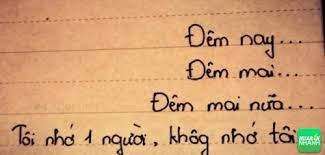 Đêm nay...
Đêm mai...
Đêm mai nữa...
Tôi nhớ 1 người, khôg nhớ tôi
NHANH